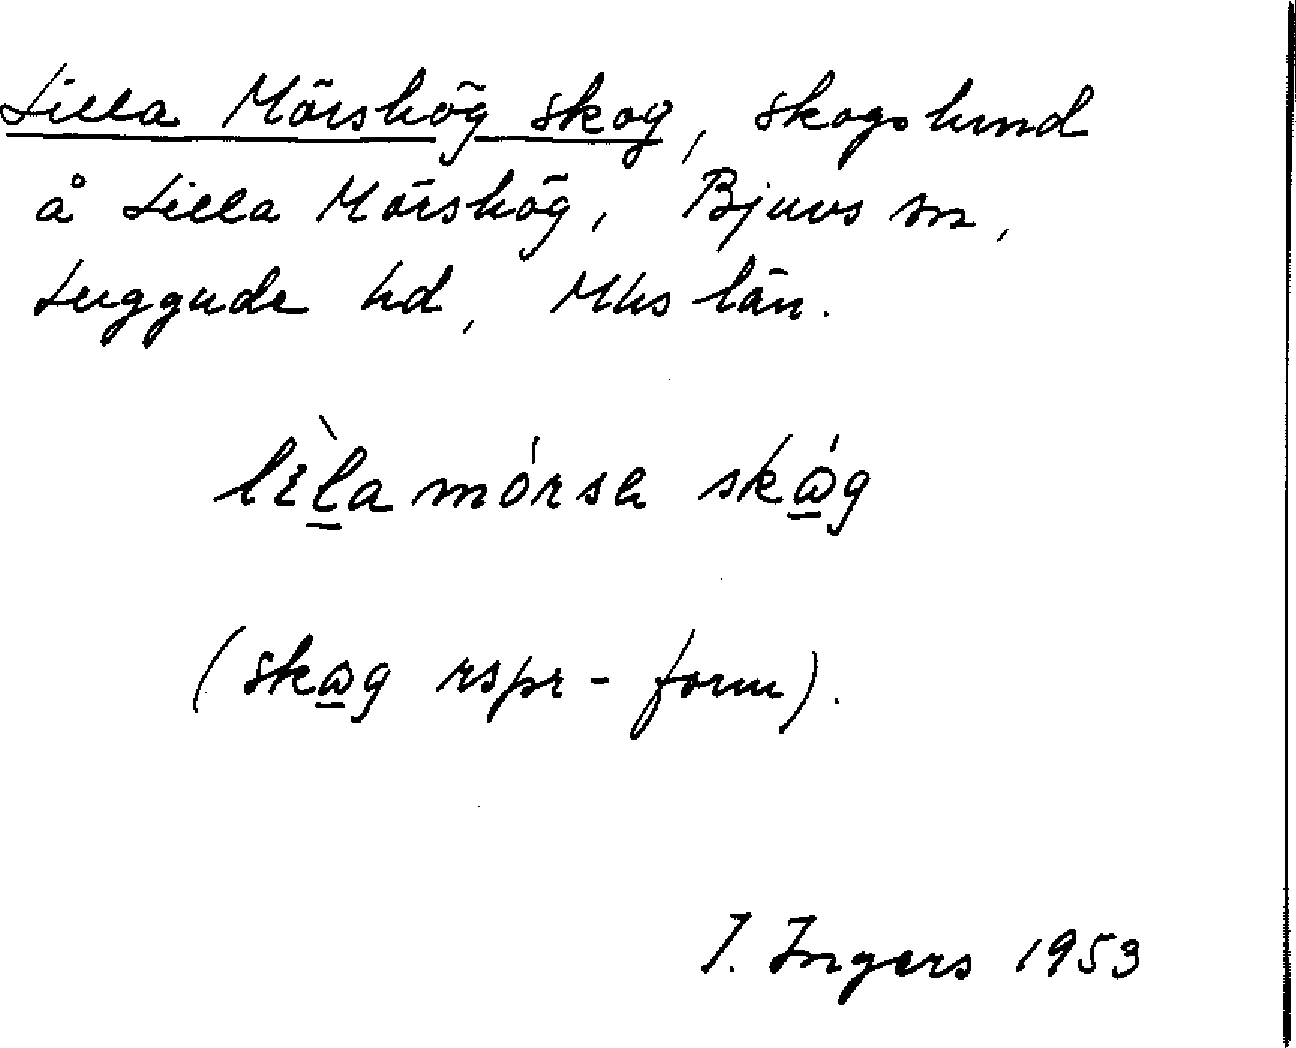 Lilla Mörshög skog, skogslund
å Lilla Mörshög, Bjuvs sn,
Luggude hd, Mhs län.
lìla mórsa skóg
(skog rspr-form).
I. Ingers 1953